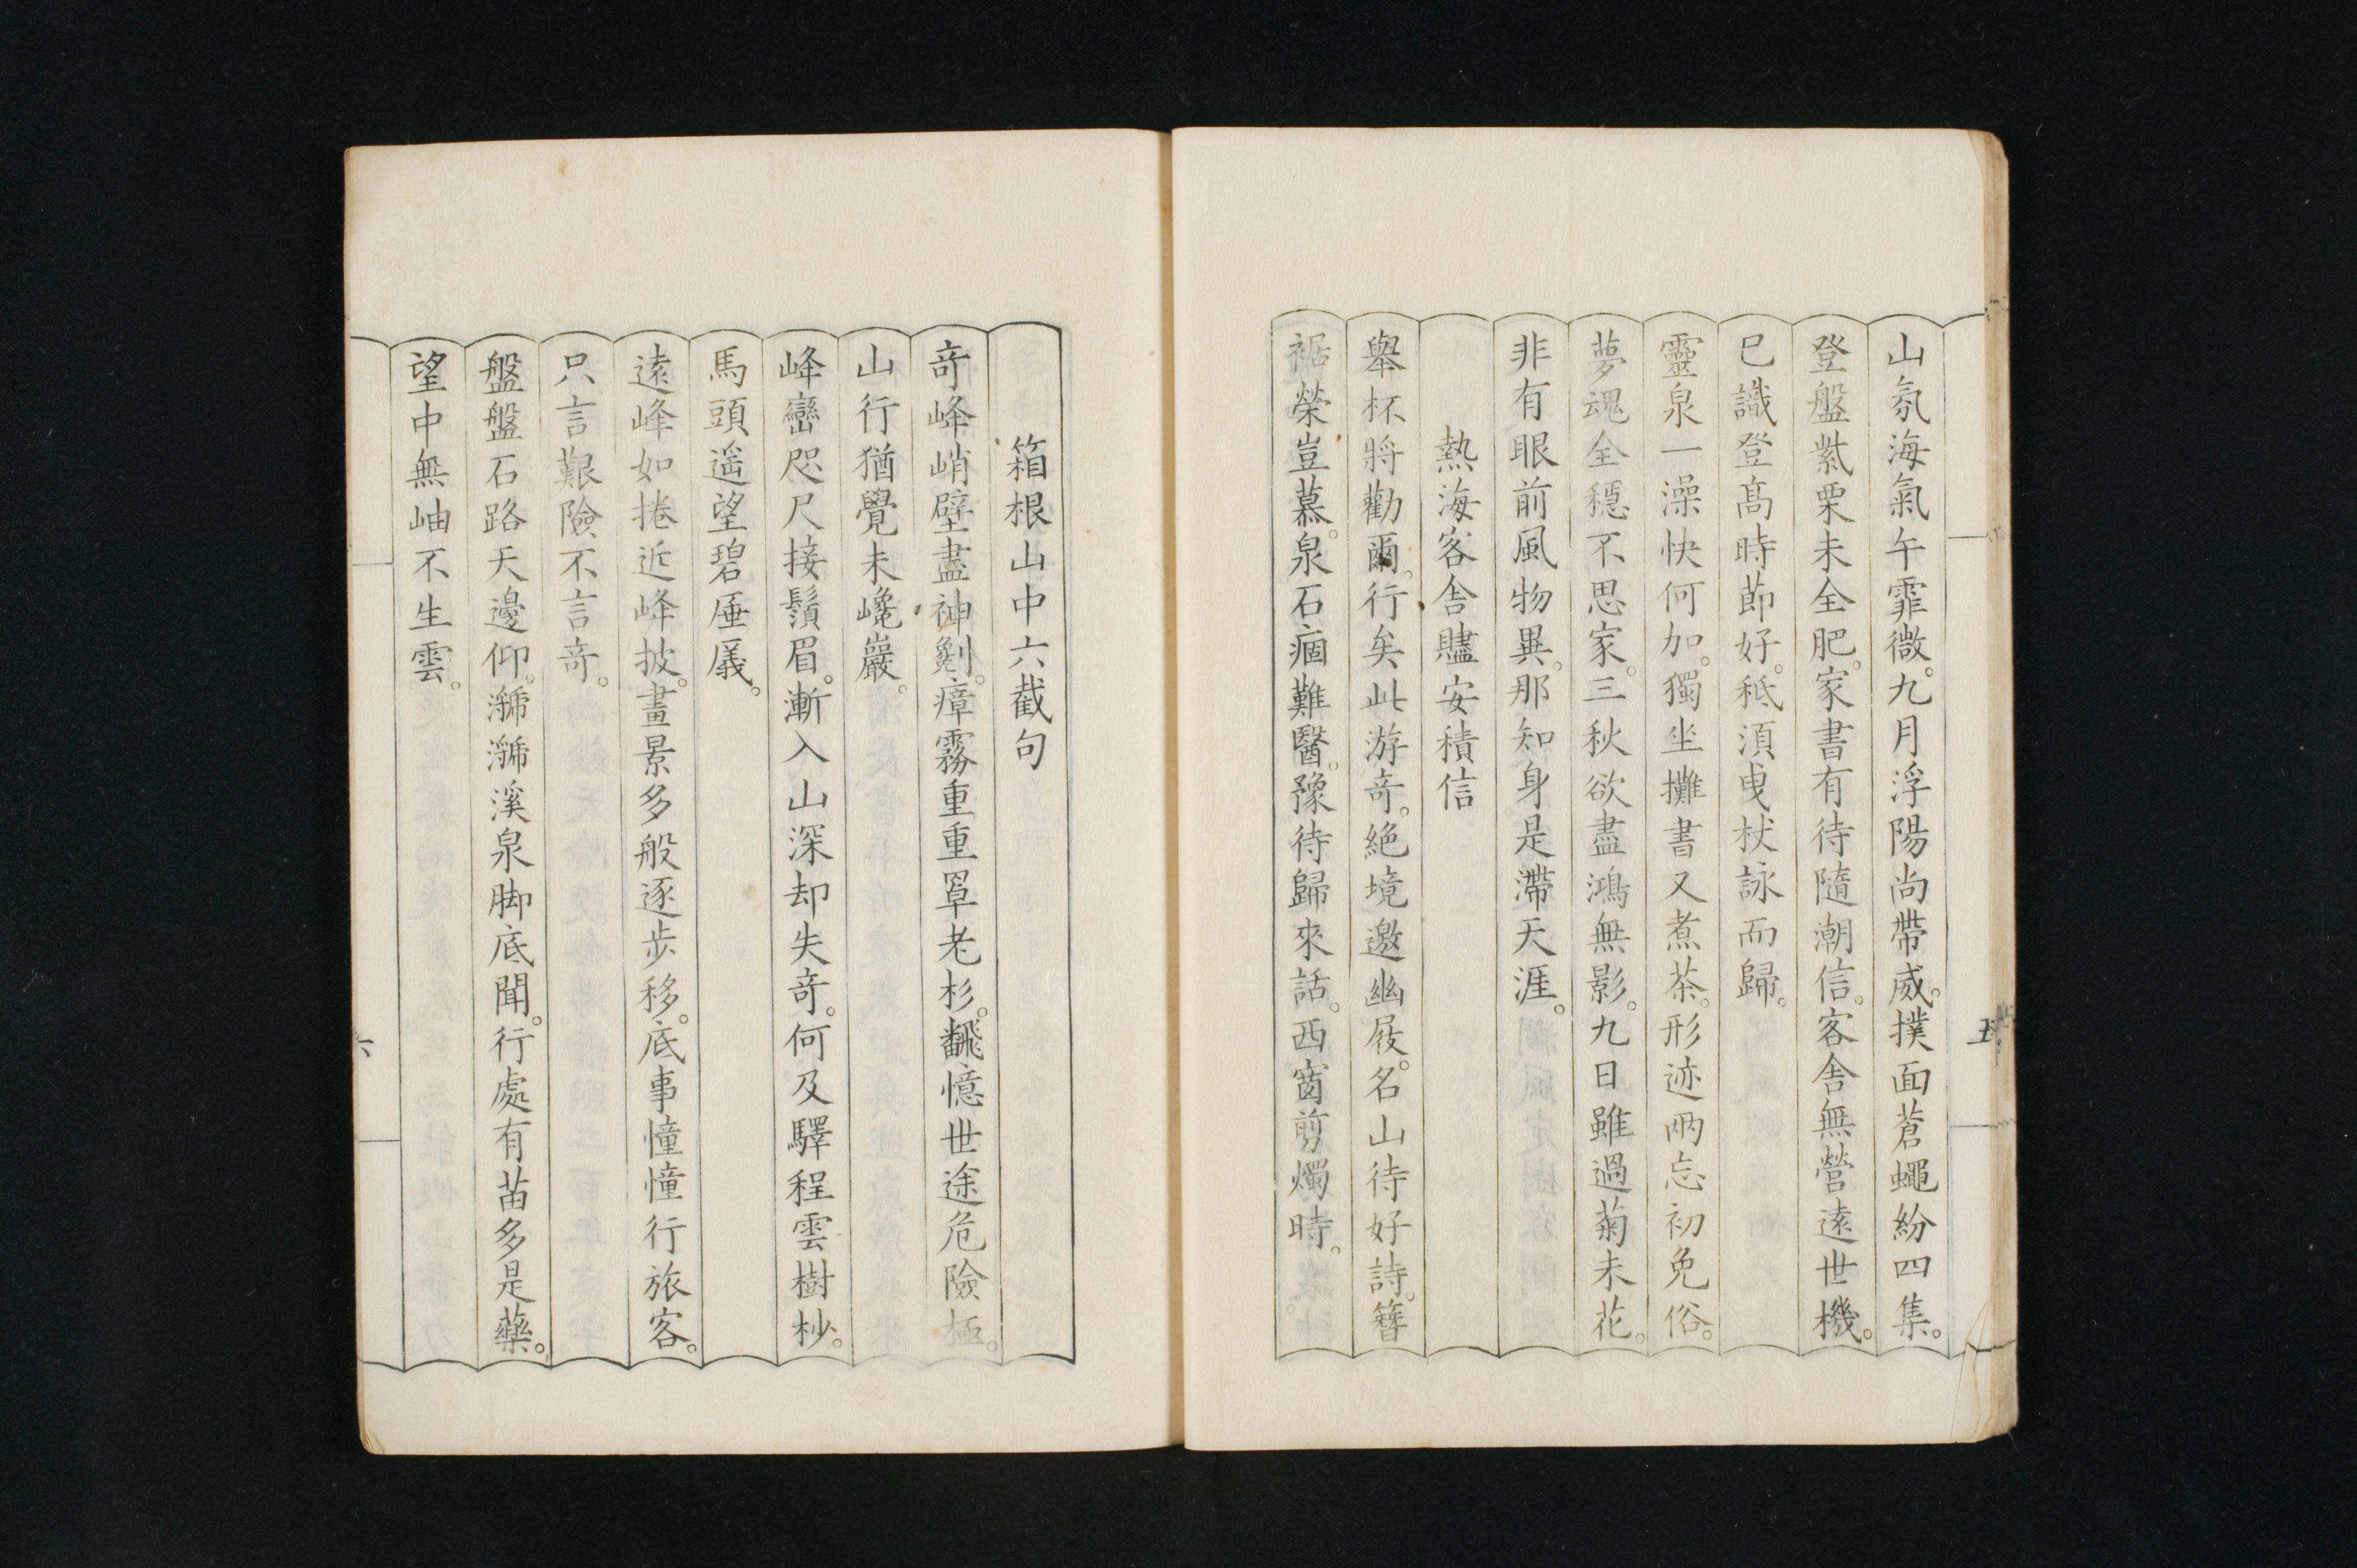 山氛海氣午霏微。九月浮陽尚帶威。撲面蒼蠅紛四集。
登盤紫栗未全肥。家書有待隨潮信。客舍無營遠世機。
已識登高時節好。秪須曳杖詠而歸。
靈泉一澡快何加。獨坐攤書又煮茶。形迹兩忘初免俗。
夢魂全穩不思家。三秋欲盡鴻無影。九日雖過菊未花。
非有眼前風物異。那知身是滯天涯。
熱海客舍贐安積信
舉杯將勸爾。行矣此游奇。絶境邀幽屐。名山待好詩。簪
裾榮豈慕。泉石痼難醫。豫待歸來話。西窗剪燭時。
五
箱根山中六截句
奇峰峭壁盡神劖。瘴霧重重罩老杉。飜憶世途危險極。
山行猶覺未巉巖。
峰巒咫尺接鬚眉。漸入山深却失奇。何及驛程雲樹杪。
馬頭遥望碧厜㕒。
遠峰如捲近峰披。畫景多般逐步移。底事憧憧行旅客。
只言艱險不言奇。
盤盤石路天邊仰。㶁㶁溪泉脚底聞。行處有苗多是藥。
望中無岫不生雲。
六